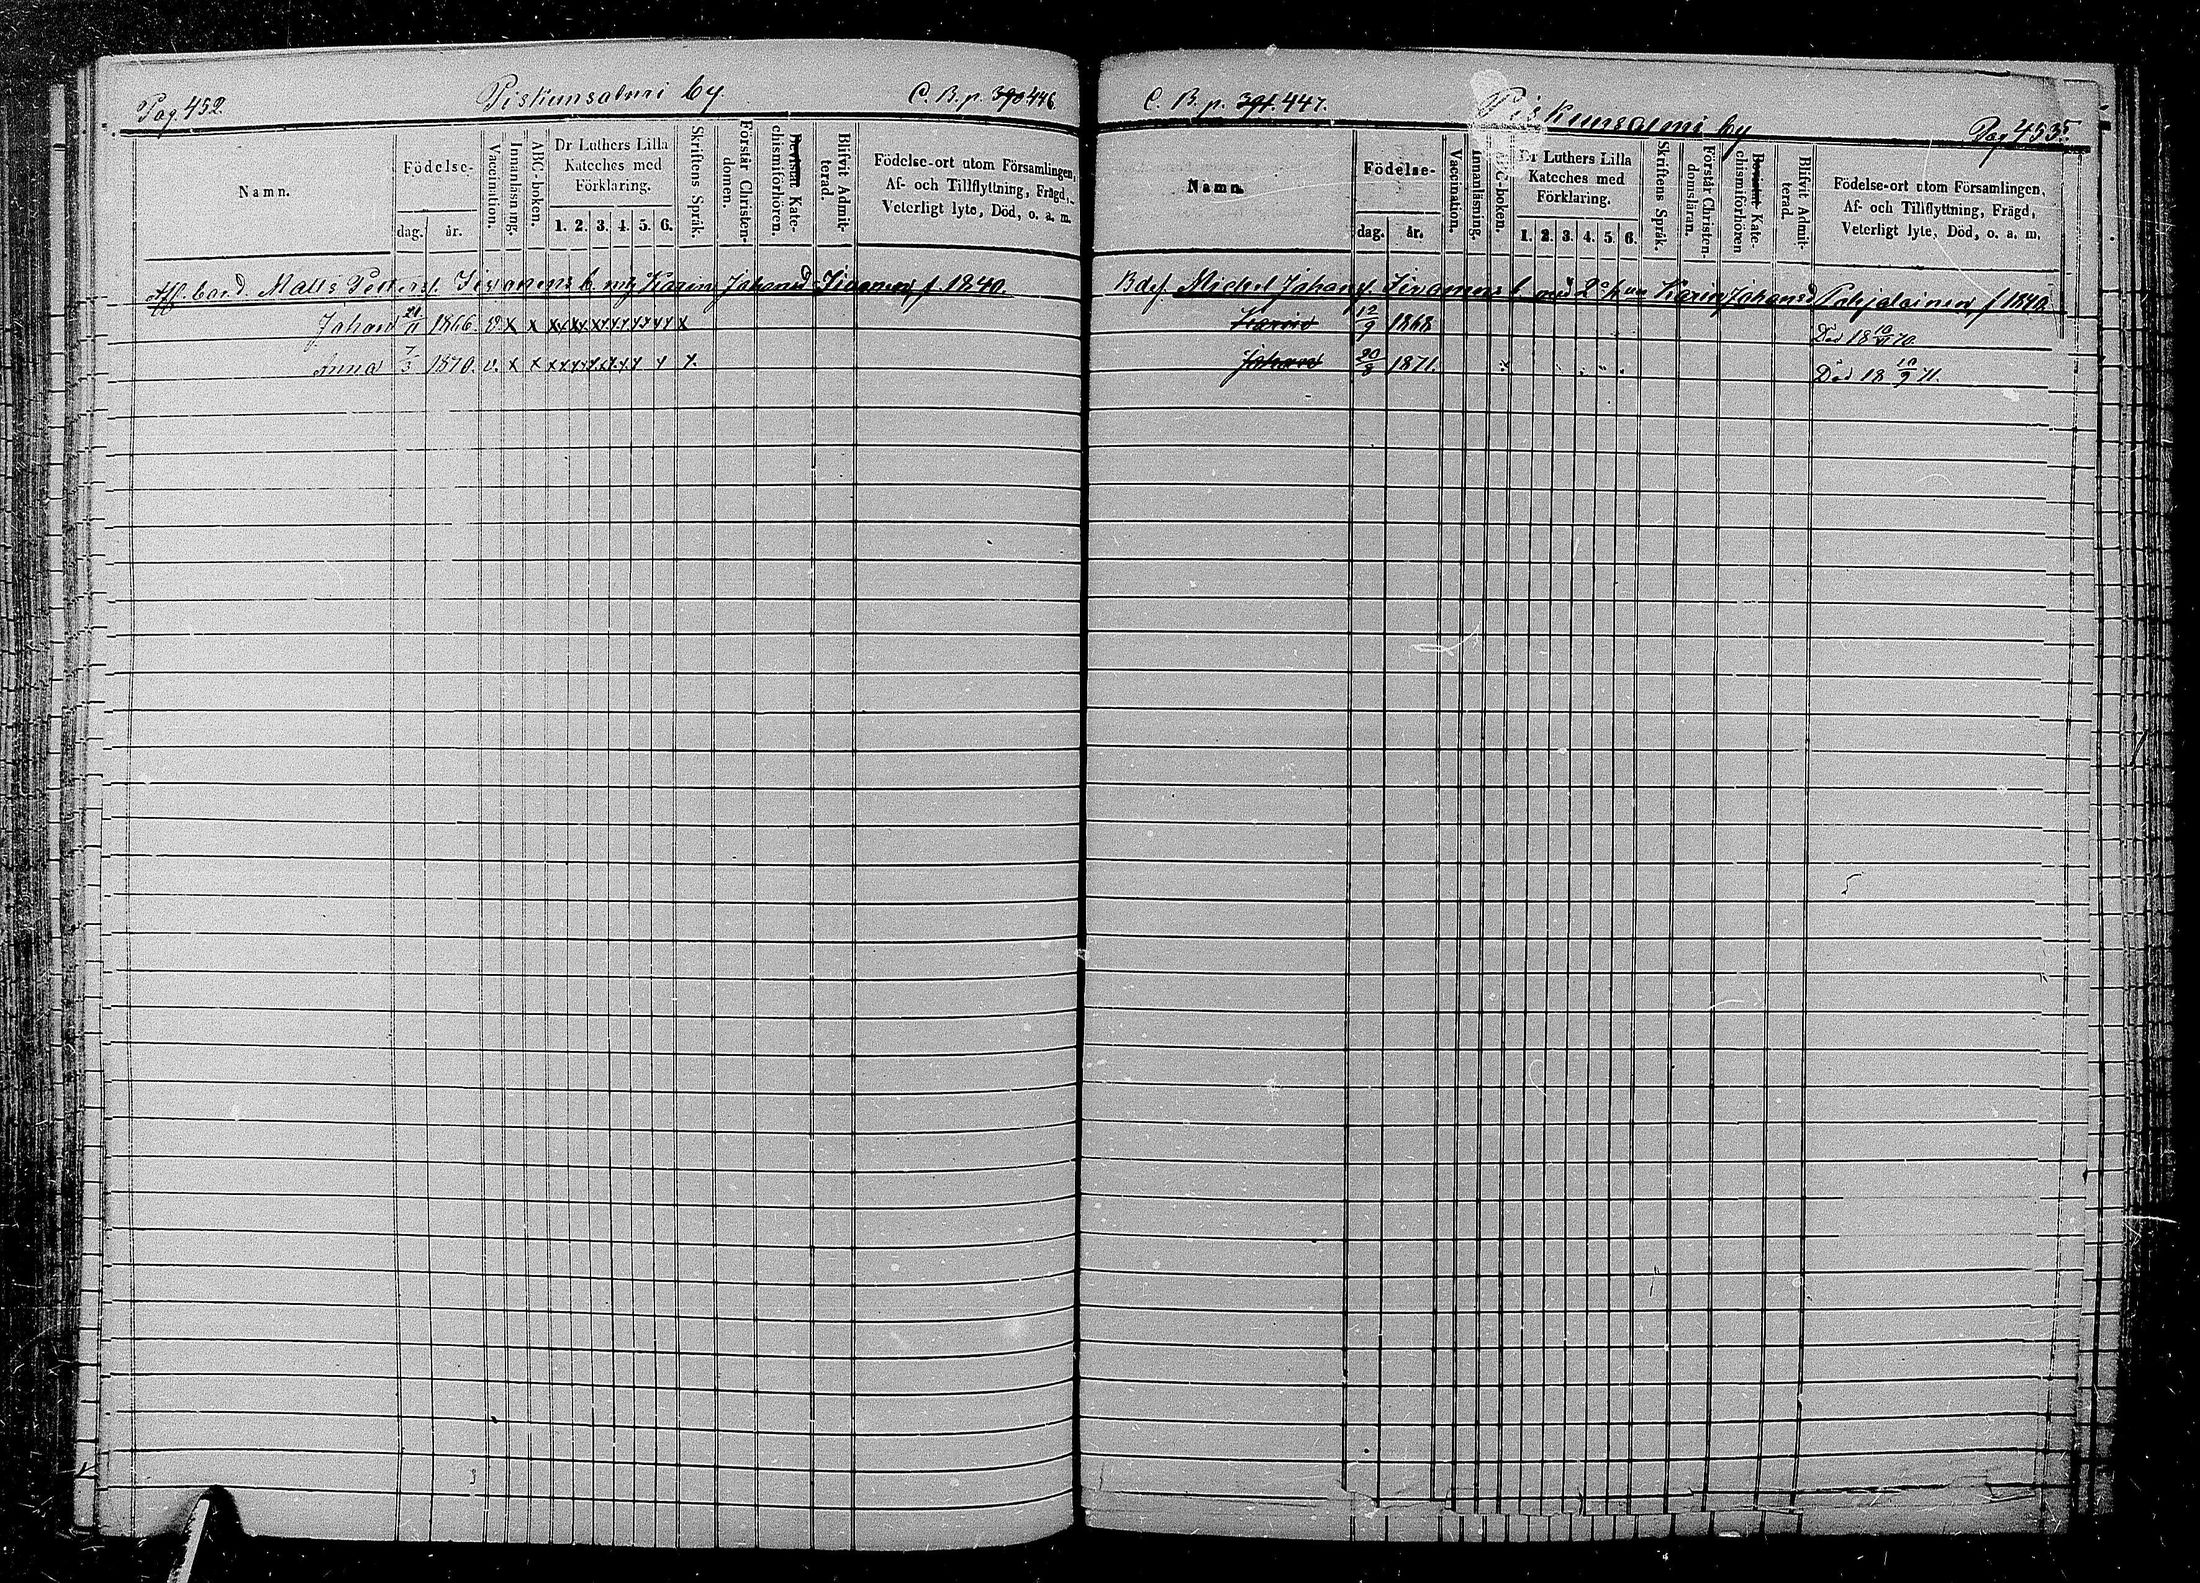 Pag. 452.
Piskunsalmi by
C. B. p. 390 446
Namn.
Födelse-
dag.
år.
Vaccination.
Innanläsning.
ABC-boken.
Dr Luthers Lilla
Kateches med
Förklaring.
1. 2. 3. 4. 5. 6.
Skriftens Språk.
Förstår Christen-
domen.
Bevistat Kate-
chismiförhören.
Blifvit Admit-
terad.
Födelse-ort utom Församlingen,
Af- och Tillflyttning, Frägd,
Veterligt lyte, Död, o. a. m.
Matts Petters. b. m. Karin Johansd f. 1840.
Johan 21/11 1866. v. x x x x x x x x x x x x x x
Anna 7/3 1870. v. x x x x x x x x x x x x
C. B. p. 391. 447.
Piskunsalmi by
Pag 453.
Namn.
Födelse-
dag.
år.
Vaccination.
Innanläsning.
ABC-boken.
Dr Luthers Lilla
Kateches med
Förklaring.
1. 2. 3. 4. 5. 6.
Skriftens Språk.
Förstår Christen-
domsläran.
Bevistat Kate-
chismiförhören
Blifvit Admit-
terad.
Födelse-ort utom Församlingen,
Af- och Tillflyttning, Frägd,
Veterligt lyte, Död, o. a. m.
Michel Johan b. med 2 h un Karin Johansd Pohjalainen, f 1840.
12/9 1868 Död 18 70
Johan 20/8 1871. Död 18 10/9 71.